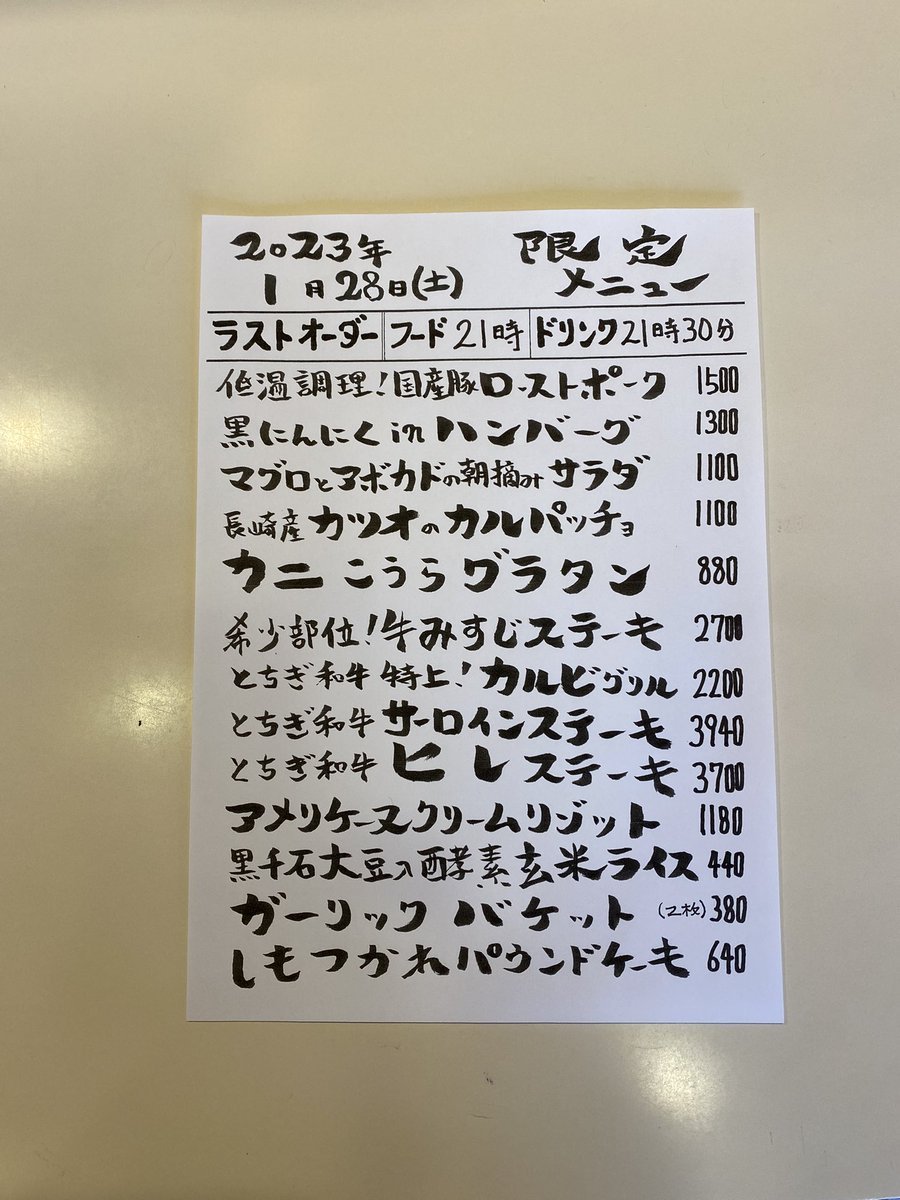 2023年 限定
1月28日(土) メニュー
ラストオーダー フード21時 ドリンク21時30分
低温調理!国産豚ローストポーク 1500
黒にんにくinハンバーグ 1300
マグロとアボカドの朝摘みサラダ 1100
長崎産カツオのカルパッチョ 1100
カニこうらグラタン 880
希少部位!牛みすじステーキ 2700
とちぎ和牛特上!カルビグリル 2200
とちぎ和牛サーロインステーキ 3940
とちぎ和牛ヒレステーキ 3700
アメリケーヌクリームリゾット 1180
黒千石大豆入酵素玄米ライス 440
ガーリックバケット(2枚) 380
しもつかれパウンドケーキ 640